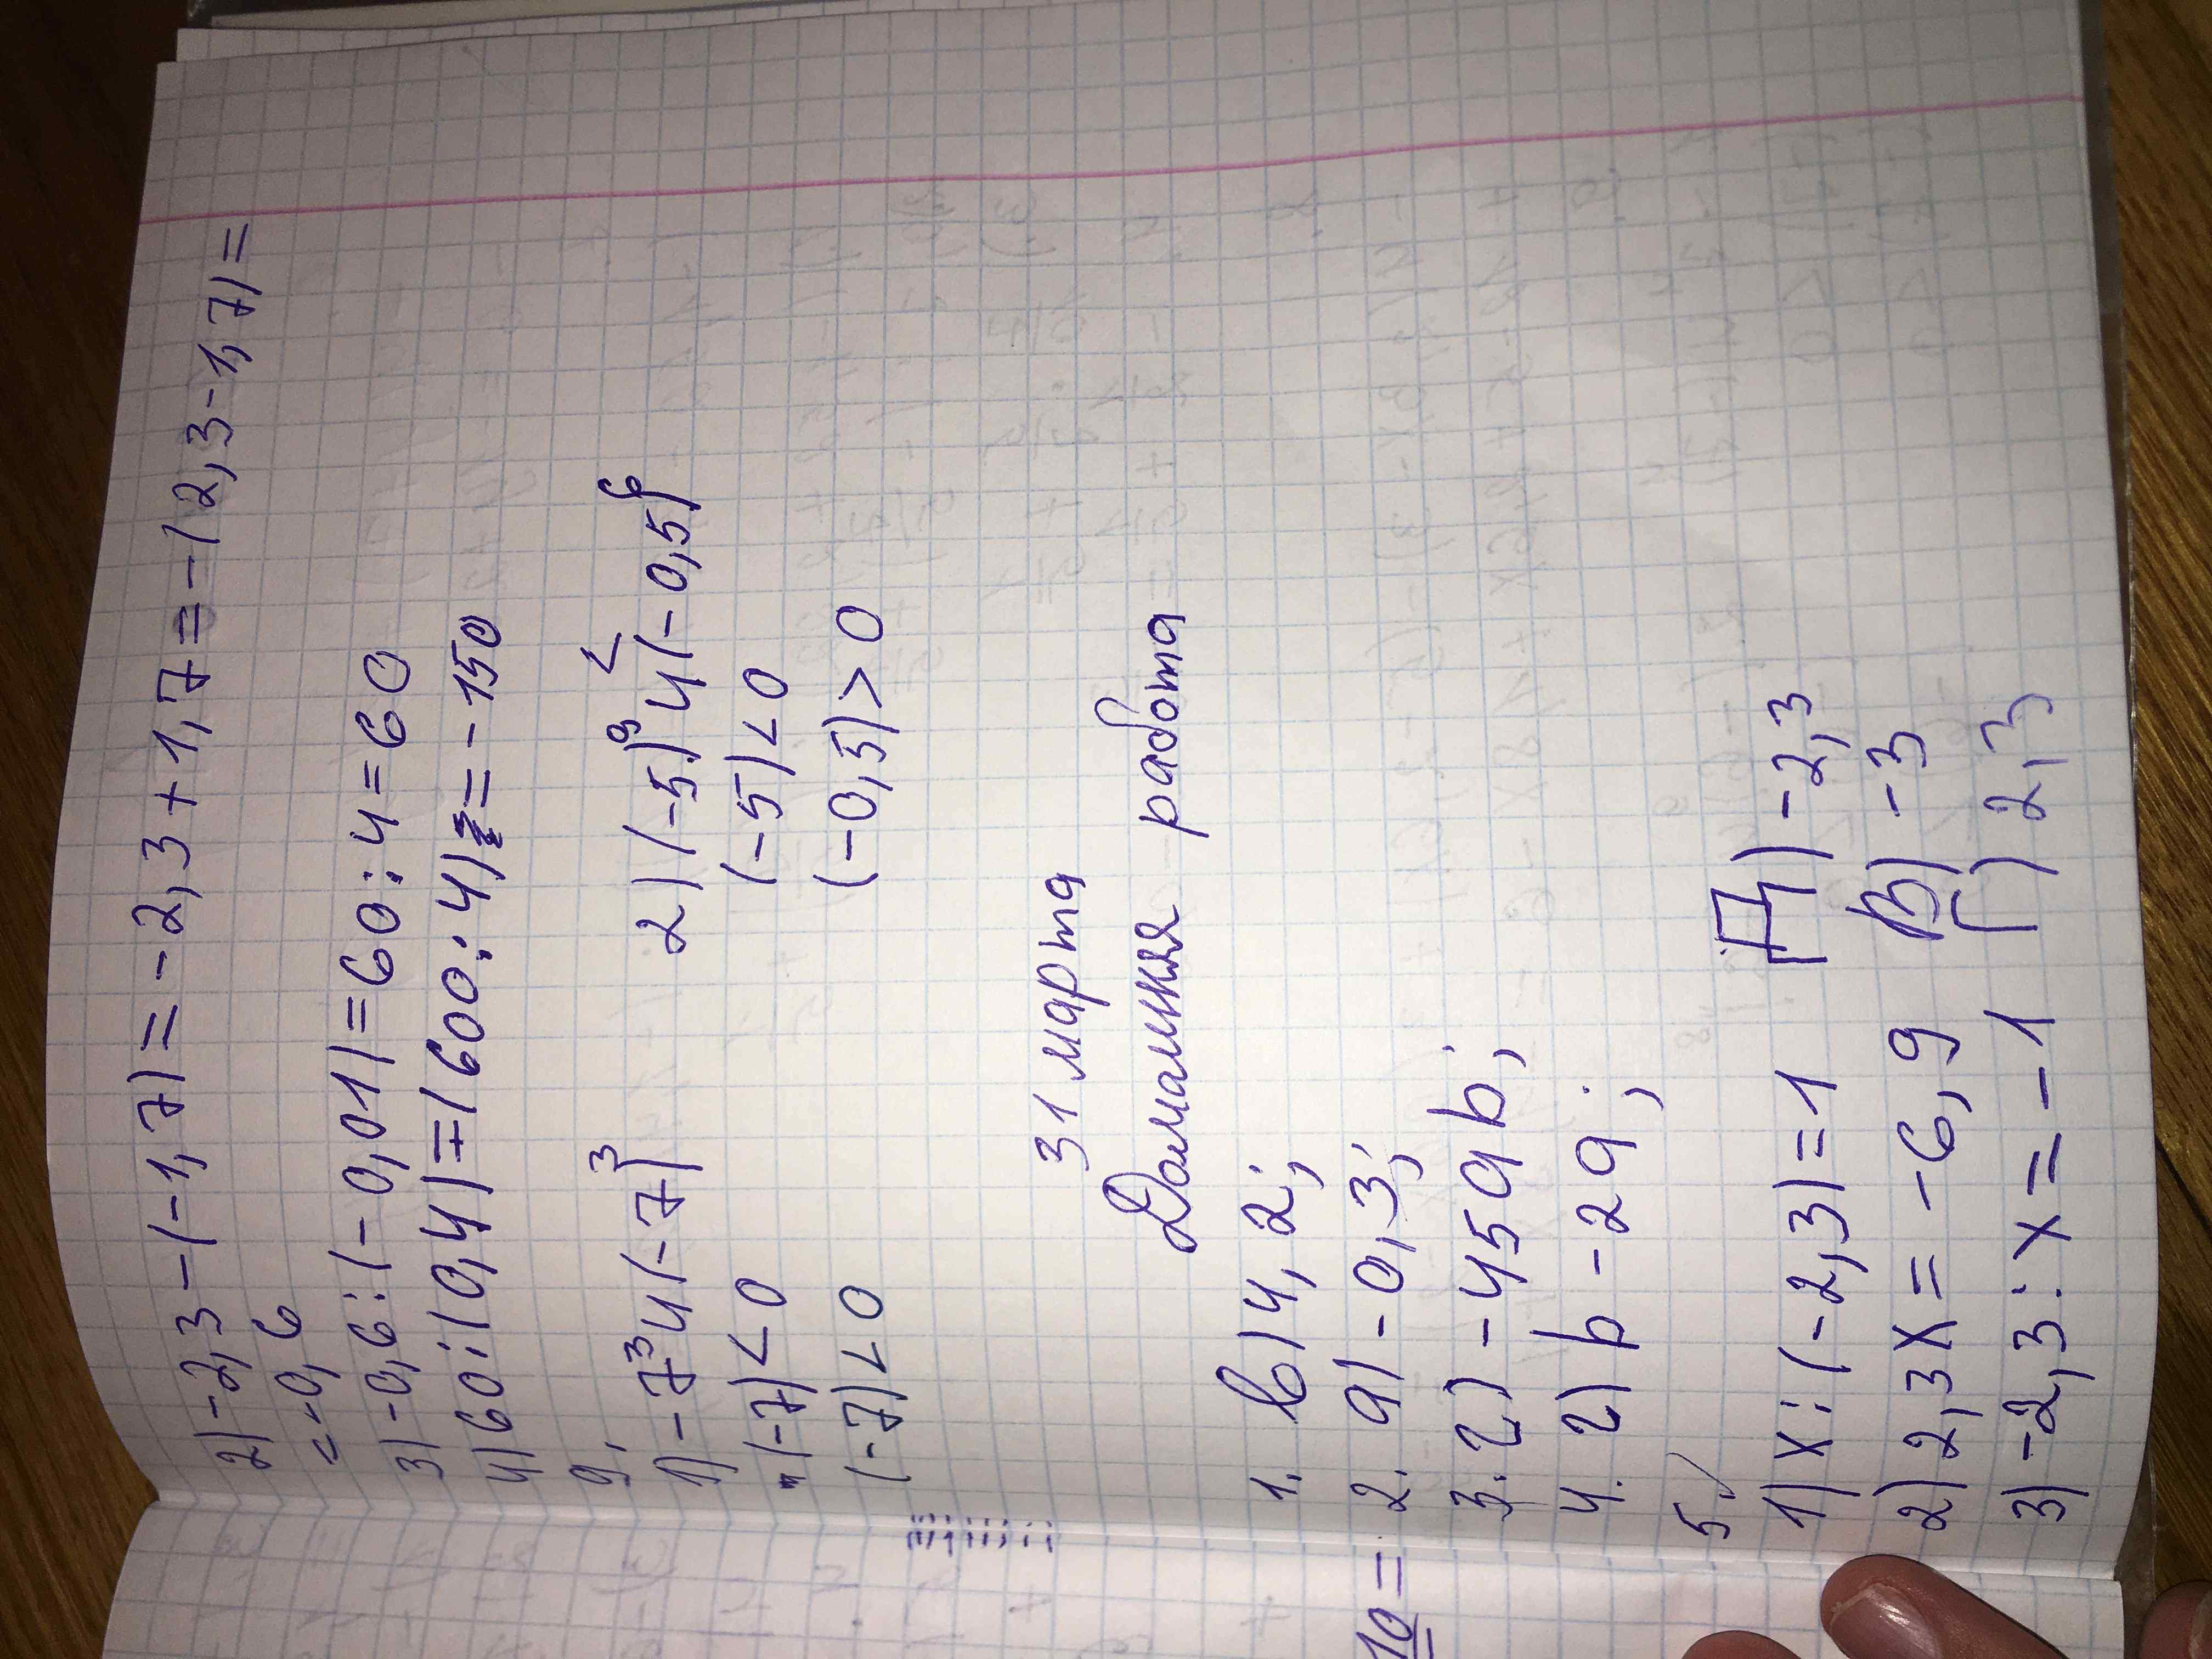 2) -2,3 - (-1,7) = -2,3 + 1,7 = -(2,3 - 1,7) =
= -0,6
3) -0,6 : (-0,01) = 60 : 4 = 60
4) 60 : (0,4) = (600 : 4) = -150
9.
1) -7³ и (-7)³
2) (-5)⁹ и (-0,5)⁶
<
(-7) < 0
(-5) < 0
(-7) < 0
(-0,5) > 0
31 марта
Домашняя работа
1. в) 4,2;
10 =
2. а) -0,3;
3. г) -45ab;
4. г) b - 29;
5.
1) x : (-2,3) = 1 Д) -2,3
2) 2,3x = -6,9 В) -3
3) -2,3 : x = -1 Г) 2,3